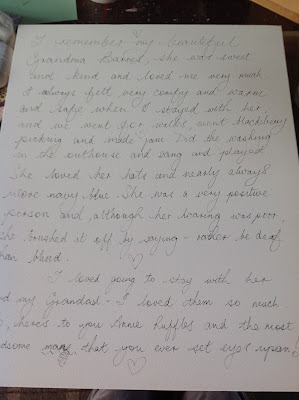 I remember my beautiful
Grandma Barred, she was sweet
and kind and loved me very much
I always felt very comfy and warm
and safe when I stayed with her
and we went for walks, went blackberry
picking and made jam. Did the washing
in the outhouse and sang and played
She loved her hats and nearly always
wore navy blue. She was a very positive
person and although her hearing was poor,
she brushed it off by saying - rather be deaf
than blind.
I loved going to stay with her
and my Grandad - I loved them so much.
So, here's to you Annie Ruffles and the most
handsome man that you ever set eyes upon!